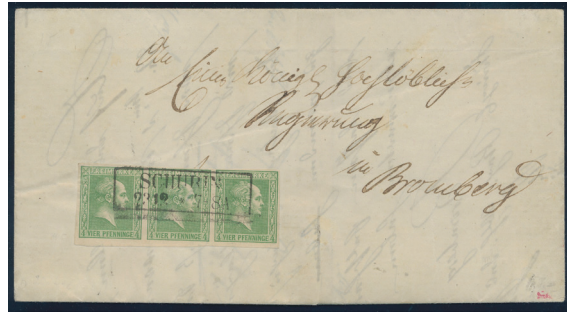 An
Eine Königl. Hochlöbliche
Regierung
in Bromberg
SCHUBIN
23 12
VIER PFENNINGE VIER PFENNINGE VIER PFENNINGE